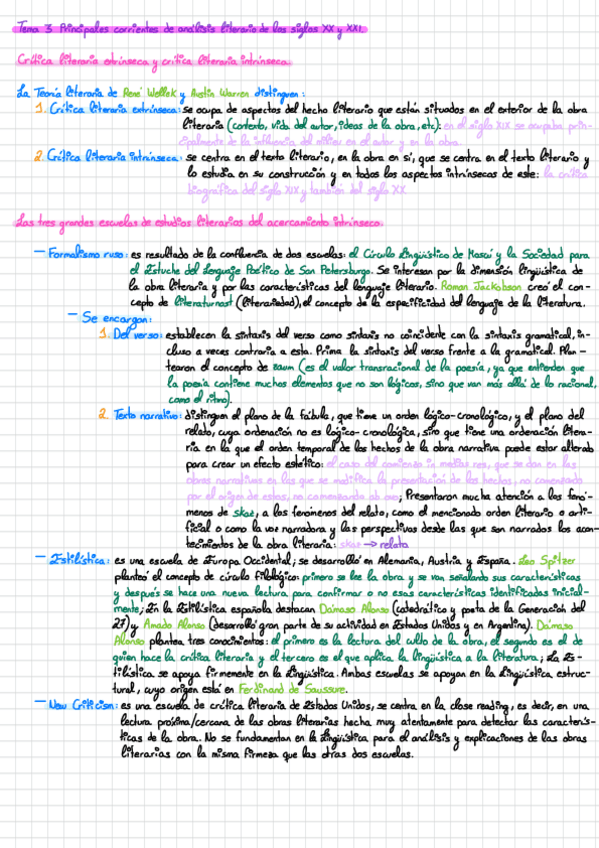 Tema 3. Principales corrientes de análisis literario de los siglos XX y XXI.
Crítica literaria extrínseca y crítica literaria intrínseca.
La Teoría literaria de René Wellek y Austin Warren distinguen:
1. Crítica literaria extrínseca: se ocupa de aspectos del hecho literario que están situados en el exterior de la obra
literaria (contexto, vida del autor, ideas de la obra, etc): en el siglo XIX se ocupaba prin-
cipalmente de la influencia del militar en el autor y en la obra.
2. Crítica literaria intrínseca: se centra en el texto literario, en la obra en sí, que se centra en el texto literario y
lo estudia en su construcción y en todos los aspectos intrínsecas de este: la crítica
biográfica del siglo XIX y también del siglo XX
Las tres grandes escuelas de estudios literarios del acercamiento intrínseco.
— Formalismo ruso: es resultado de la confluencia de dos escuelas: el Círculo Lingüístico de Moscú y la Sociedad para
el Estuche del Lenguaje Poético de San Petersburgo. Se interesan por la dimensión lingüística de
la obra literaria y por las características del lenguaje literario. Roman Jackobson creó el con-
cepto de literaturnost (literariedad), el concepto de la especificidad del lenguaje de la literatura.
— Se encargan:
1. Del verso: establecen la sintaxis del verso como sintaxis no coincidente con la sintaxis gramatical, in-
cluso a veces contraria a esta. Prima la sintaxis del verso frente a la gramatical. Plan-
tearon el concepto de zaum (es el valor transracional de la poesía, ya que entienden que
la poesía contiene muchos elementos que no son lógicos, sino que van más allá de lo racional,
como el ritmo).
2. Texto narrativo: distinguen el plano de la fábula, que tiene un orden lógico-cronológico, y el plano del
relato, cuya ordenación no es lógico-cronológica, sino que tiene una ordenación litera-
ria en la que el orden temporal de los hechos de la obra narrativa puede estar alterado
para crear un efecto estético: el caso del comienzo in medias res, que se dan en las
obras narrativas en las que se modifica la presentación de los hechos, no comenzado
por el origen de estas, no comenzando ab ovo; Presentaron mucha atención a los fenó-
menos de skaz, a los fenómenos del relato, como el mencionado orden literario o arti-
ficial o como la voz narradora y las perspectivas desde las que son narrados los acon-
tecimientos de la obra literaria: skaz → relato
— Estilística: es una escuela de Europa Occidental; se desarrolló en Alemania, Austria y España. Leo Spitzer
planteó el concepto de círculo filológico: primero se lee la obra y se van señalando sus características
y después se hace una nueva lectura para confirmar o no esas características identificadas inicial-
mente; En la Estilística española destacan Dámaso Alonso (catedrático y poeta de la Generación del
27) y Amado Alonso (desarrolló gran parte de su actividad en Estados Unidos y en Argentina). Dámaso
Alonso plantea tres conocimientos: el primero es la lectura del culto de la obra, el segundo es el de
quien hace la crítica literaria y el tercero es el que aplica la lingüística a la literatura; La Es-
tilística se apoya firmemente en la Lingüística. Ambas escuelas se apoyan en la Lingüística estruc-
tural, cuyo origen está en Ferdinand de Saussure.
— New Criticism: es una escuela de crítica literaria de Estados Unidos, se centra en la close reading, es decir, en una
lectura próxima/cercana de las obras literarias hecha muy atentamente para detectar las caracterís-
ticas de la obra. No se fundamentan en la Lingüística para el análisis y explicaciones de las obras
literarias con la misma firmeza que las otras dos escuelas.